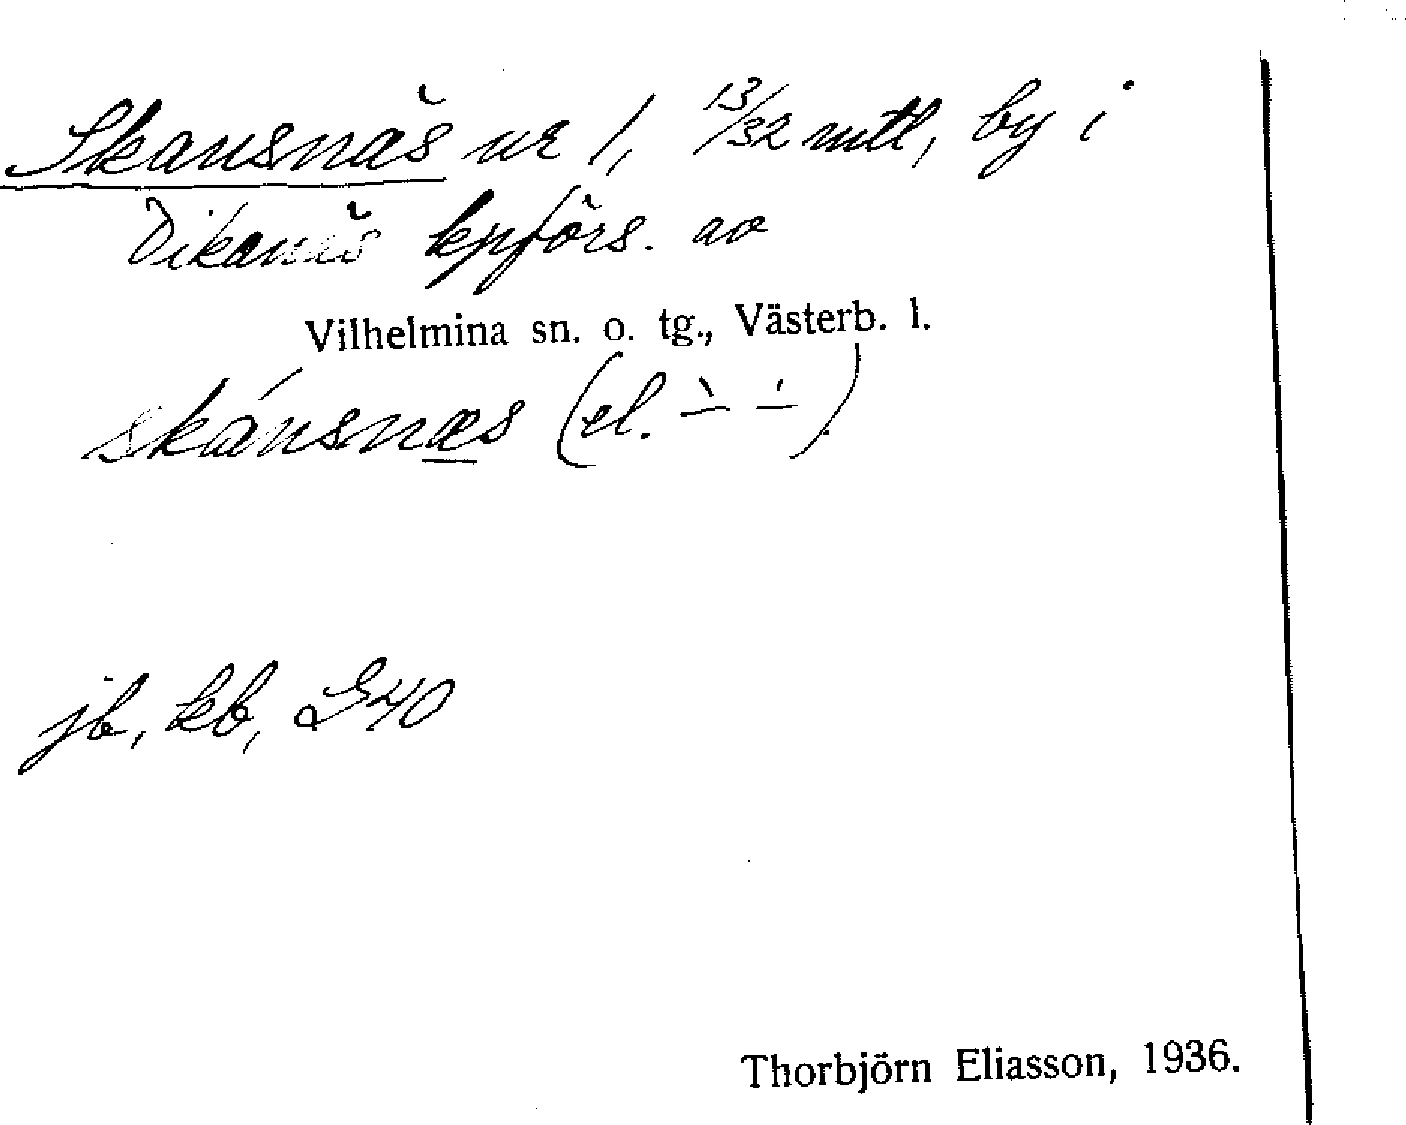 Skansnäs nr 1, 13/32 mtl, by i
Dikanäs kpförs. av
Vilhelmina sn. o. tg., Västerb. l.
skánsnæs (el. –̀ –́).
jb, kb, G40
Thorbjörn Eliasson, 1936.